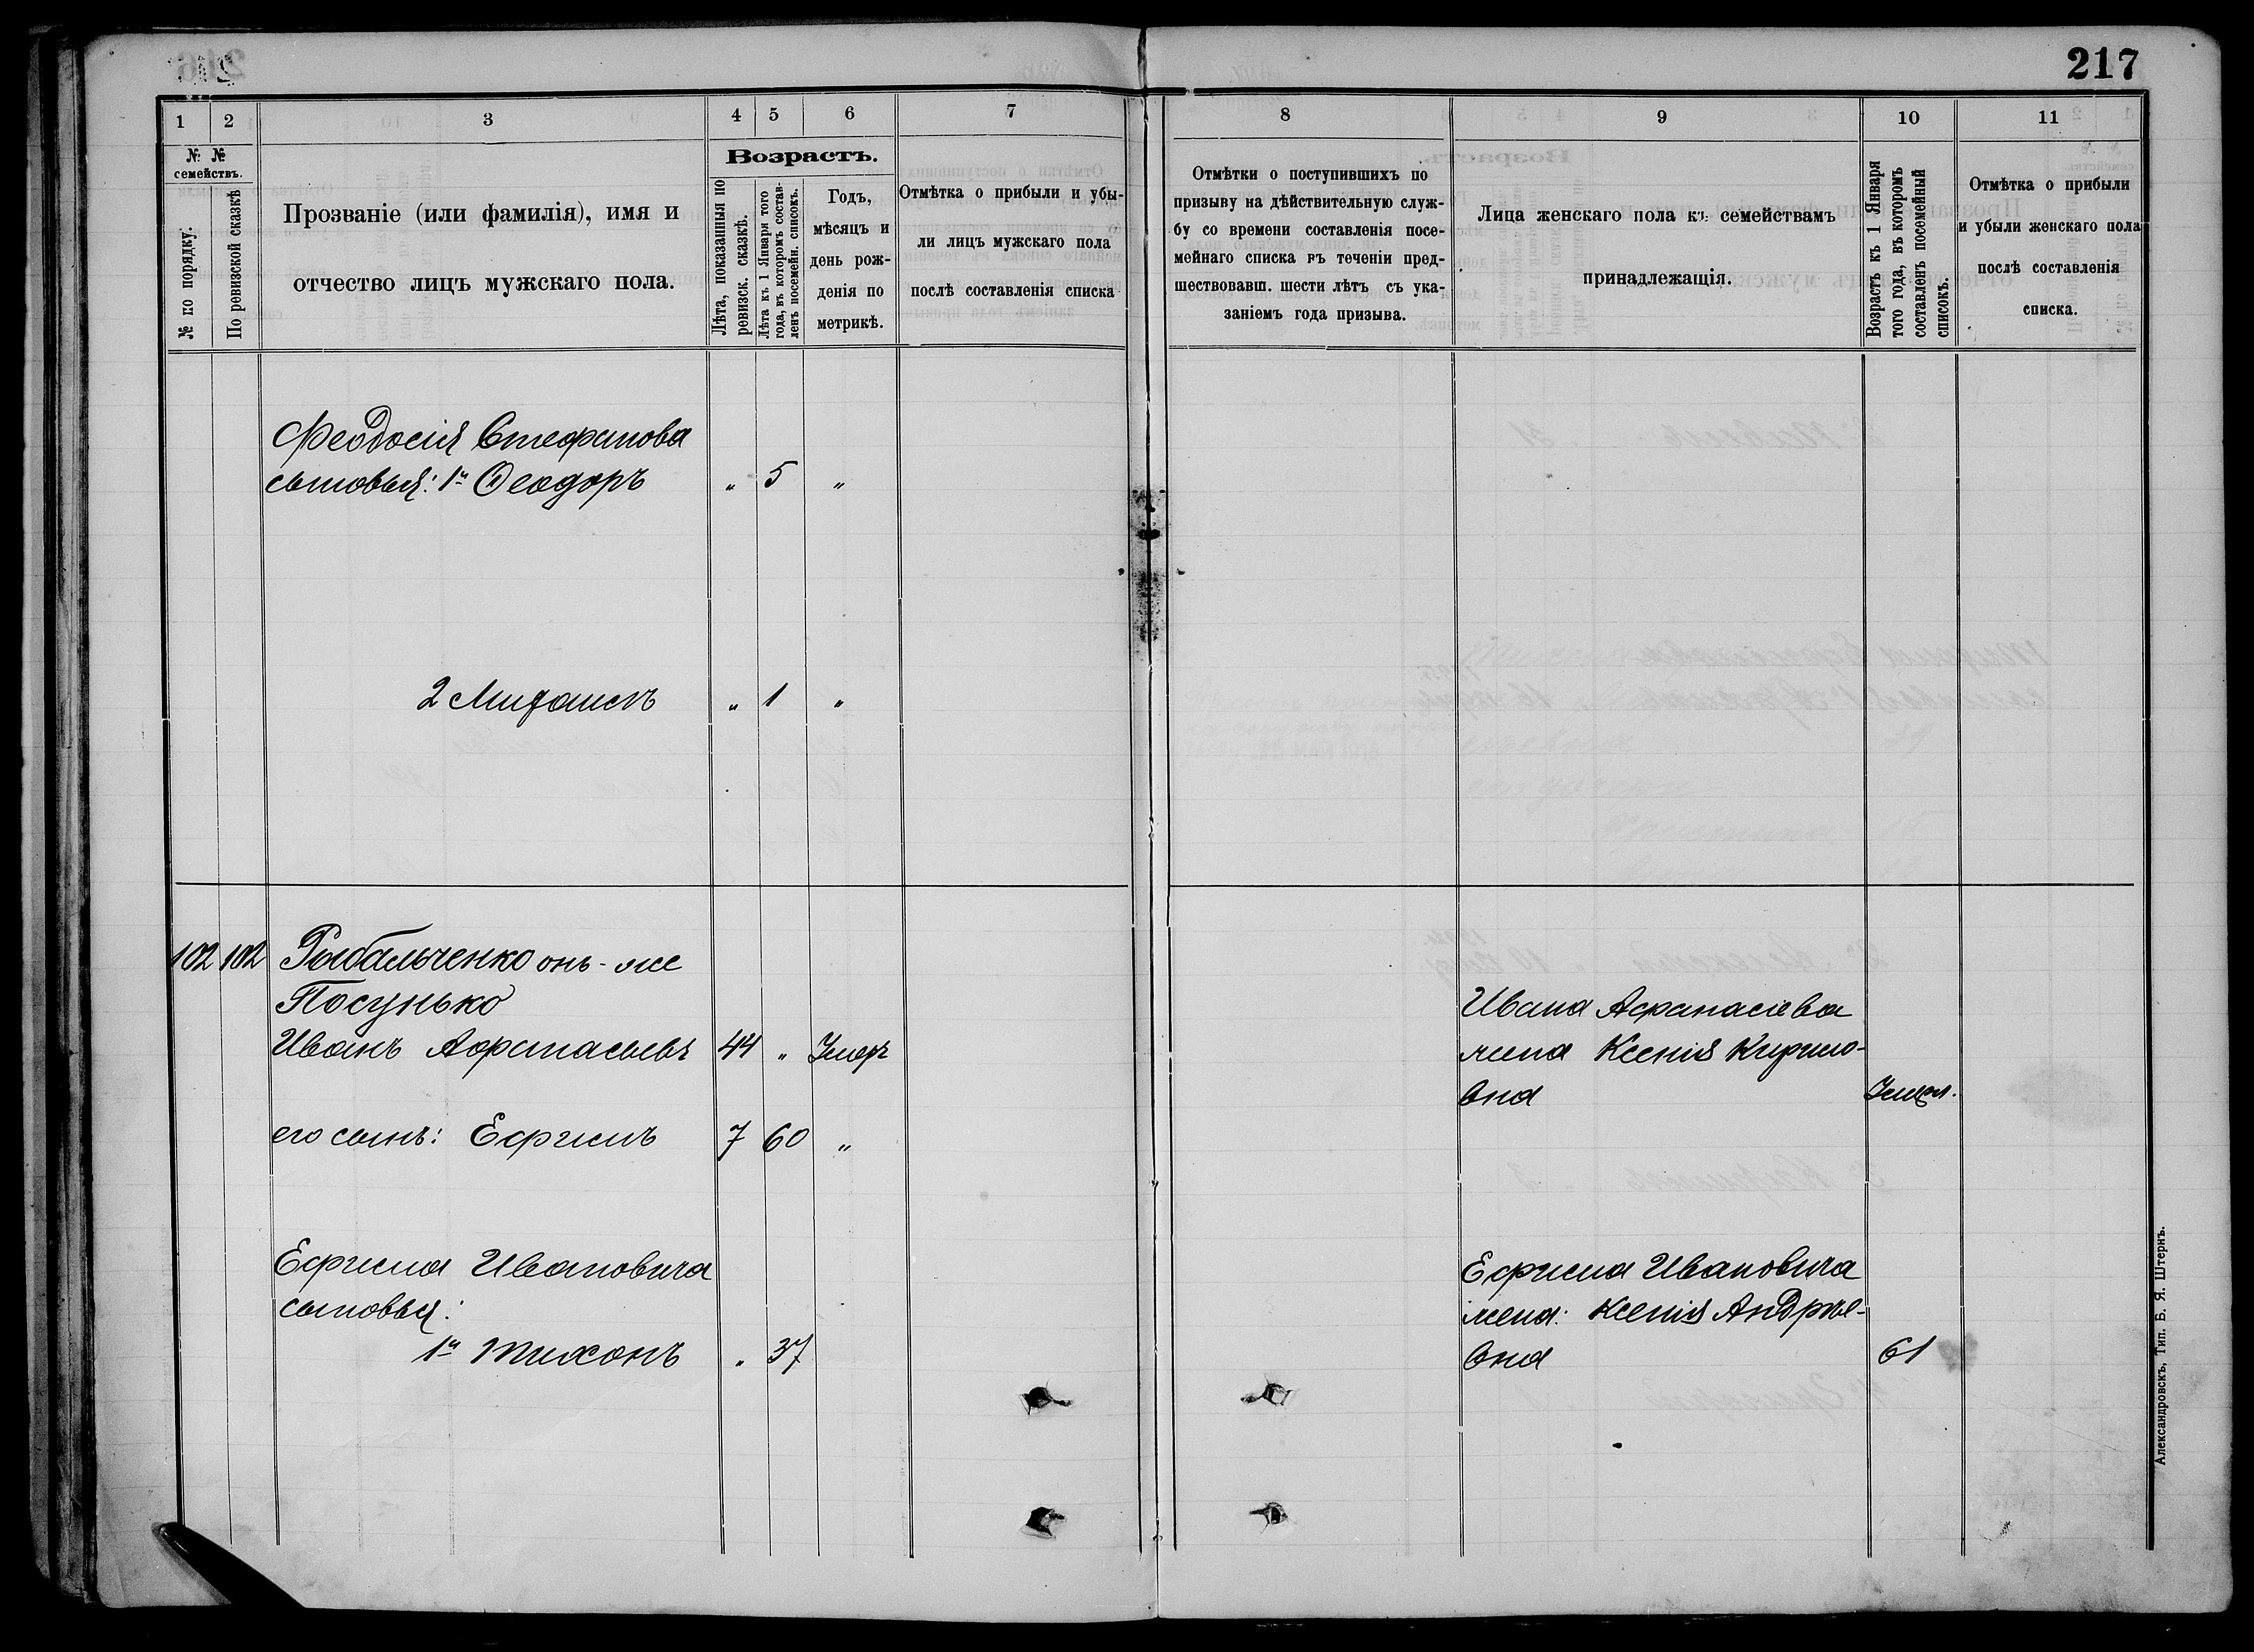 217
1 2 3 4 5 6 7
№ № семействъ.
№ по порядку.
По ревизской сказкѣ
Прозваніе (или фамилія), имя и
отчество лицъ мужскаго пола.
Возрастъ.
Лѣта, показанныя по
ревизск. сказкѣ.
Лѣта къ 1 Января того
года, въ которомъ состав-
ленъ посемейн. списокъ.
Годъ,
мѣсяцъ и
день рож-
денія по
метрикѣ.
Отмѣтка о прибыли и убы-
ли лицъ мужскаго пола
послѣ составленія списка
8 9 10 11
Отмѣтки о поступившихъ по
призыву на дѣйствительную служ-
бу со времени составленія посе-
мейнаго списка въ теченіи пред-
шествовавш. шести лѣтъ съ ука-
заніемъ года призыва.
Лица женскаго пола къ семействамъ
принадлежащія.
Возрастъ къ 1 Января
того года, въ которомъ
составленъ посемейный
списокъ.
Отмѣтка о прибыли
и убыли женскаго пола
послѣ составленія
списка.
Феодосія Стефанова
сыновья: 1й Ѳеодоръ " 5 "
2 Михаилъ " 1 "
102 102 Рыбальченко онъ-же
Посунько
Иванъ Афанасьевъ 44 " Умеръ
его сынъ: Ефимъ 7 60 "
Ефима Ивановича
сыновья:
1й Тихонъ " 37
Ивана Афанасіева
жена Ксенія Кирило-
вна Умерл.
Ефима Ивановича
жена: Ксенія Андрѣе-
вна 61
Александровскъ, Тип. Б. Я. Штернъ.